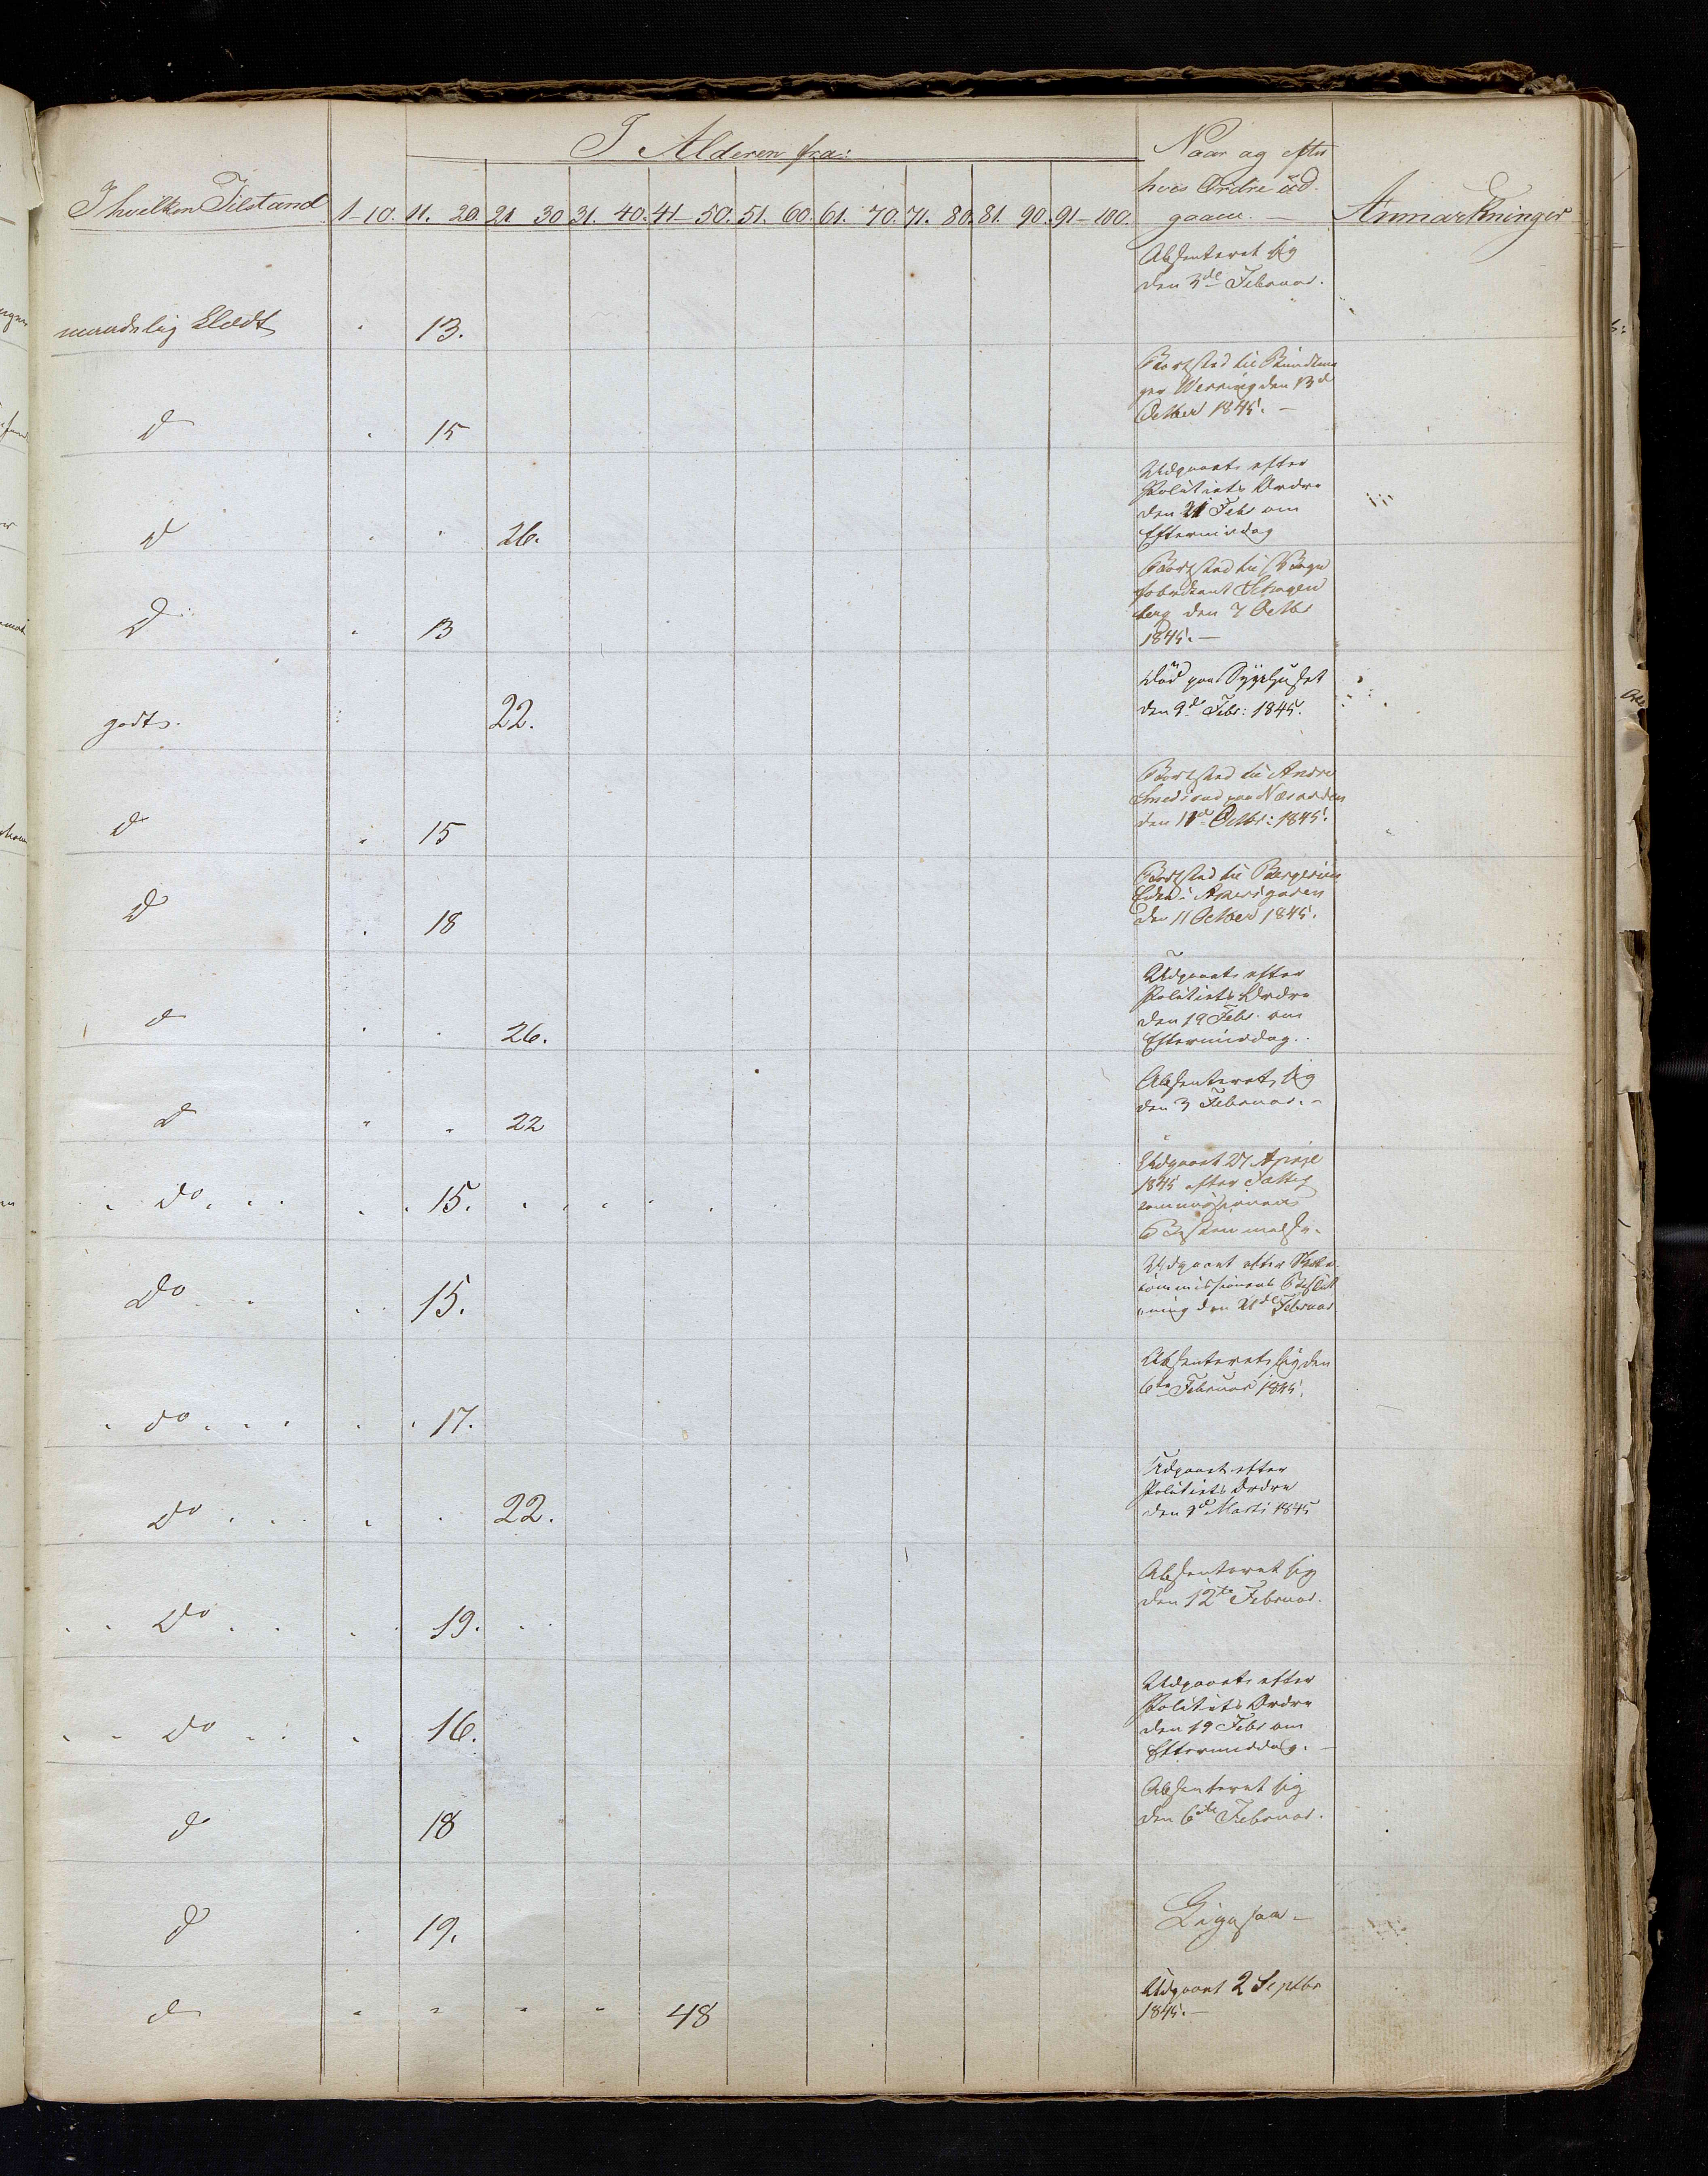 I Alderen fra:
Naar og efter
hves Ordre ud-
gaaen. —
I hvilken Tilstand 1-10. 11. 20. 21 30 31. 40. 41-50. 51. 60. 61. 70. 71. 80. 81. 90. 91-100. Anmærkninger
Absenteret sig
den 3de Februar.
maadelig Klædt " 13.
Bortsted til
den 13d
October 1845. —
d " 15
Udgaaet efter
Politiets Ordre
den 21 Febr om
Eftermiddag
d " " 26.
Bortsted til
den 7 Octbr
1845. —
d " 13
Död paa Sygehuset
den 9d Febr: 1845.
godt. 22.
Bortsted til Andre
den 11d Octbr: 1845.
d " 15
Bortsted til
den 11 October 1845.
d " 18
Udgaaet efter
Politiets Ordre
den 19 Febr. om
Eftermiddag.
d " " 26.
Absenteret sig
den 3 Februar. –
d " " 22
Udgaaet 27 April
1845 efter Fattig
commissionens
Bestemmelse.
do 15.
Udgaaet efter
commissionens Beslut
ning den 21de Februar
do 15.
Absenteret sig den
6te Februar 1845.
do 17.
Udgaaet efter
Politiets Ordre
den 9d Marts 1845
do 22.
Absenteret sig
den 12te Februar.
do 19.
Udgaaet efter
Politiets Ordre
den 19 Febr om
Eftermiddag. —
do 16.
Absenteret sig
den 6te Februar.
d 18
Ligesaa –
d 19.
Udgaaet 2 Septbr
1845. —
d " " " " 48